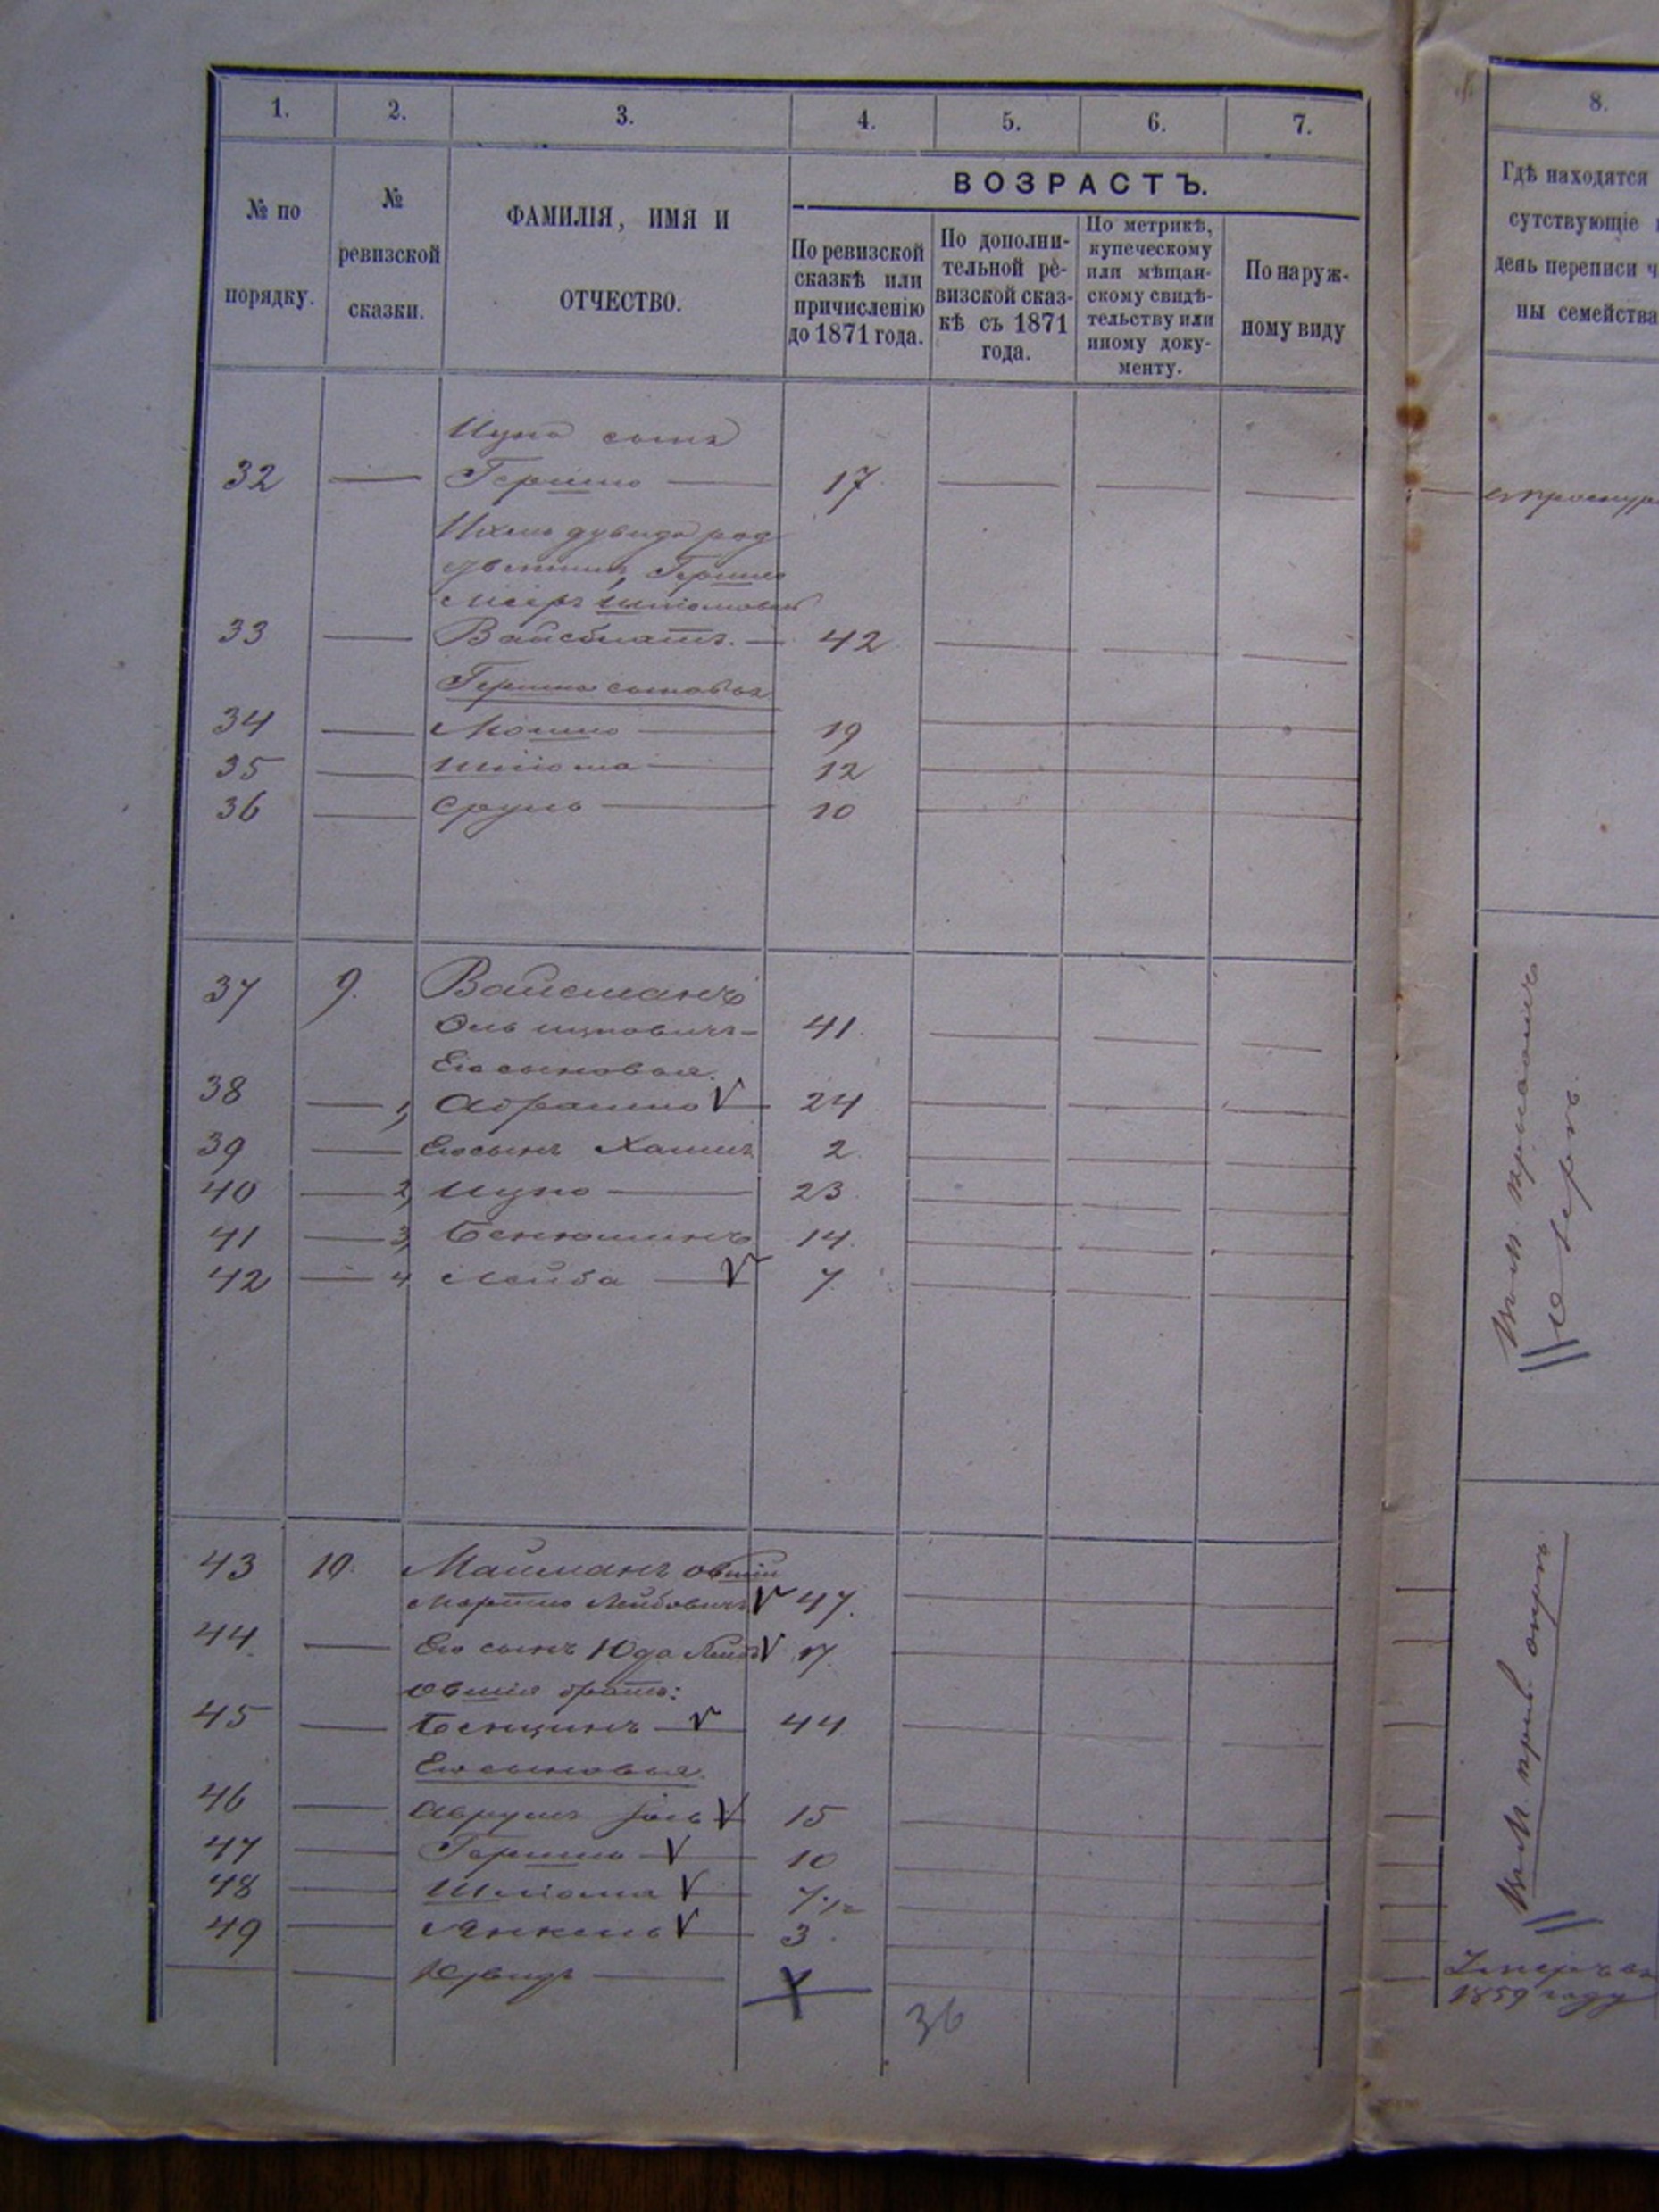 1. 2. 3. 4. 5. 6. 7.
№ по порядку.
№ ревизской сказки.
ФАМИЛІЯ, ИМЯ И ОТЧЕСТВО.
ВОЗРАСТЪ.
По ревизской сказкѣ или причисленію до 1871 года.
По дополни-тельной ре-визской сказ-кѣ съ 1871 года.
По метрикѣ, купеческому или мѣщан-скому свидѣ-тельству или иному доку-менту.
По наруж-ному виду
Ицка сынъ
32 — Гершко — 17
Ихель дувида род
Гершко
Мееръ Шліомовъ
33 — Вайсблатъ. — 42
Гершка сыновья
34 — Мошко — 19
35 — Шліома — 12
36 — Сруль — 10
37 9. Вайсманъ
Ось ицковичъ — 41.
Его сыновья.
38 — 1, Абрашко V 24
39 — Его сынъ Хаимъ 2
40 — 2, Ицко — 23
41 — 3, Бенюминъ 14.
42 — 4. Лейба — V 7
43 10. Майманъ овшій
Мортко Лейбовичъ V 47.
44. — Его сынъ Юда Лейб V 17
Овшія братъ:
45 — Бенционъ — V 44
Его сыновья.
46 — Аврумъ Іось V 15
47 — Гершко — V 10
48 — Шліома V 7 1/2
49 — Янкель V 3
— — Дувидъ —
36
8.
Гдѣ находятся
сутствующіе
день переписи ч
ны семейства
1859 году